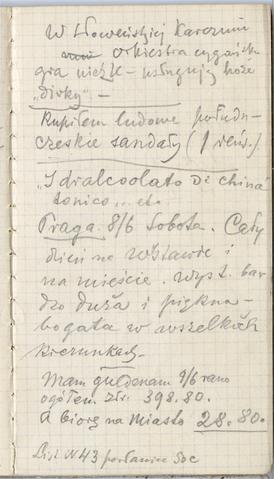 W słoweńskiej Karczmi
orkiestra cygańska
gra nieźle – usługują hoże
„dirky" –
Kupiłem ludowe połudn-
czeskie sandały (1 reńs.)
„Idralcoolato Di china
tonico... etc
Praga. 8/6 Sobota. Cały
dzień na wystawie i
na mieście. Wyst. bar
dzo duża i piękna –
bogata w wszelkich
kierunkach –
Mam guldenam 9/6 rano
ogółem złr. 398.80.
a biorę na miasto 28.80.
N 43